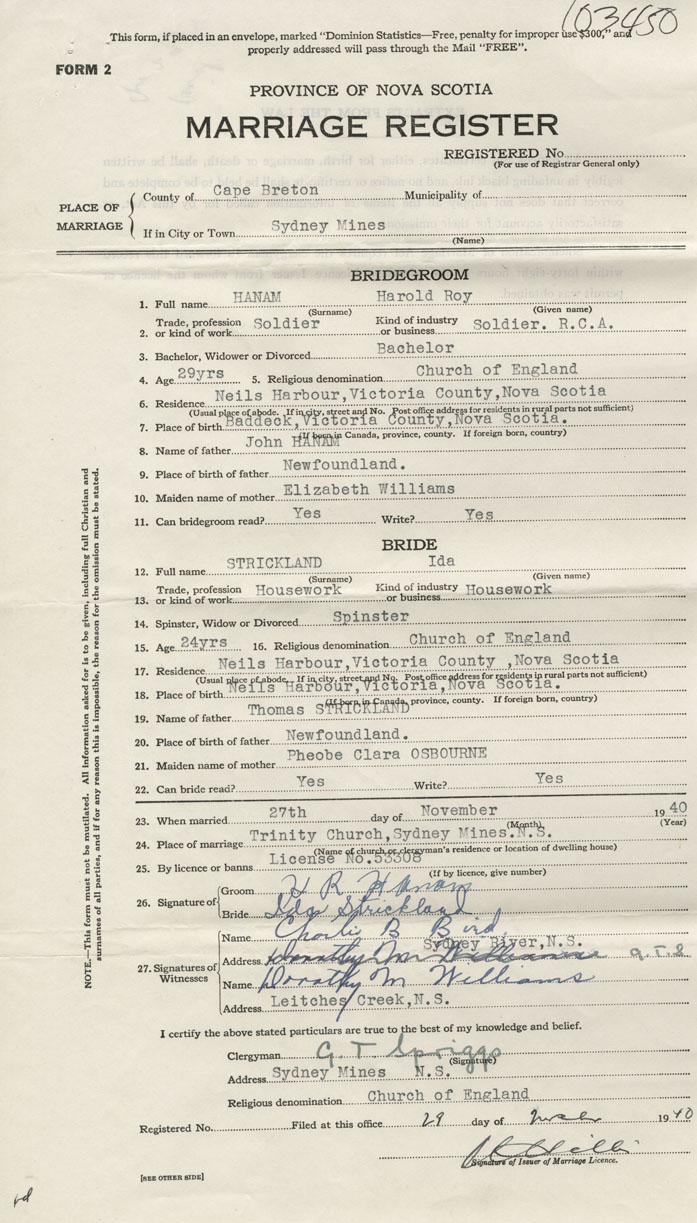 103450
This form, if placed in an envelope, marked “Dominion Statistics—Free, penalty for improper use $300,” and
properly addressed will pass through the Mail “FREE”.
FORM 2
PROVINCE OF NOVA SCOTIA
MARRIAGE REGISTER
REGISTERED No.
(For use of Registrar General only)
PLACE OF MARRIAGE
County of Cape Breton Municipality of
If in City or Town Sydney Mines
(Name)
BRIDEGROOM
1. Full name HANAM Harold Roy
(Surname) (Given name)
2. Trade, profession or kind of work Soldier Kind of industry or business Soldier. R.C.A.
3. Bachelor, Widower or Divorced Bachelor
4. Age 29yrs 5. Religious denomination Church of England
6. Residence Neils Harbour,Victoria County,Nova Scotia
(Usual place of abode. If in city, street and No. Post office address for residents in rural parts not sufficient)
7. Place of birth Baddeck,Victoria County,Nova Scotia.
(If born in Canada, province, county. If foreign born, country)
8. Name of father John HANAM
9. Place of birth of father Newfoundland.
10. Maiden name of mother Elizabeth Williams
11. Can bridegroom read? Yes Write? Yes
BRIDE
12. Full name STRICKLAND Ida
(Surname) (Given name)
13. Trade, profession or kind of work Housework Kind of industry or business Housework
14. Spinster, Widow or Divorced Spinster
15. Age 24yrs 16. Religious denomination Church of England
17. Residence Neils Harbour,Victoria County ,Nova Scotia
(Usual place of abode. If in city, street and No. Post office address for residents in rural parts not sufficient)
18. Place of birth Neils Harbour,Victoria,Nova Scotia.
(If born in Canada, province, county. If foreign born, country)
19. Name of father Thomas STRICKLAND
20. Place of birth of father Newfoundland.
21. Maiden name of mother Pheobe Clara OSBOURNE
22. Can bride read? Yes Write? Yes
23. When married 27th day of November 1940
(Month) (Year)
24. Place of marriage Trinity Church,Sydney Mines.N.S.
(Name of church or clergyman's residence or location of dwelling house)
25. By licence or banns License No.53308
(If by licence, give number)
26. Signature of
Groom H R Hanam
Bride Ida Strickland
27. Signatures of Witnesses
Name Charlie B Bird
Address Dorothy M Williams Sydney River,N.S. G.T.S
Name Dorothy M Williams
Address Leitches Creek,N.S.
I certify the above stated particulars are true to the best of my knowledge and belief.
Clergyman G. T. Spriggs
(Signature)
Address Sydney Mines N.S.
Religious denomination Church of England
Registered No. Filed at this office 29 day of 1940
Signature of Issuer of Marriage Licence.
[SEE OTHER SIDE]
NOTE.—This form must not be mutilated. All information asked for is to be given, including full Christian and
surnames of all parties, and if for any reason this is impossible, the reason for the omission must be stated.